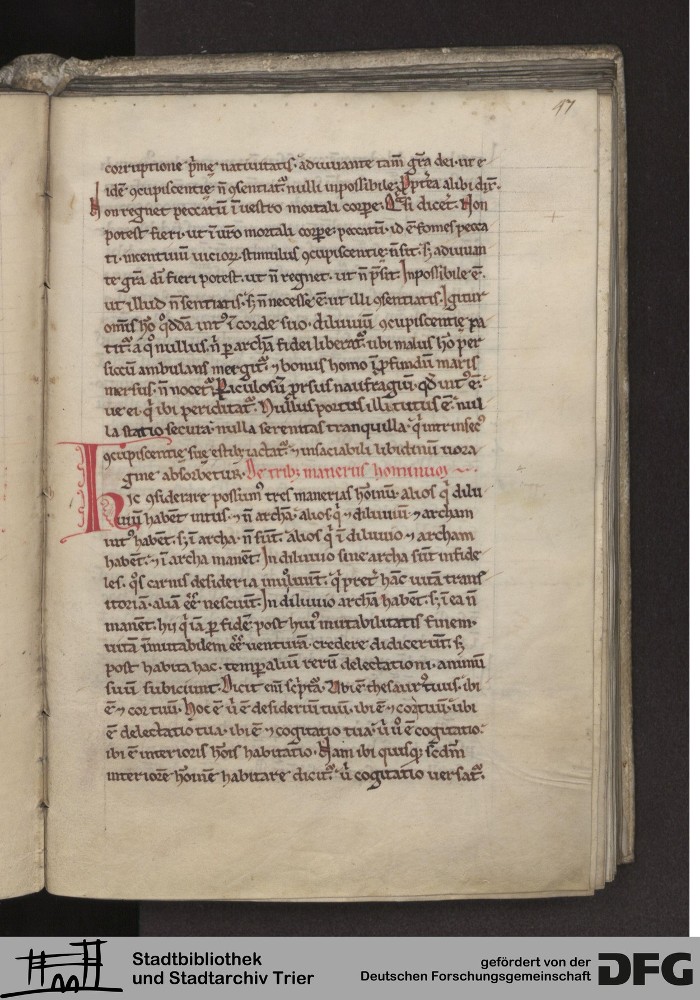 47
corruptione p̄mę natiuitatis· adiuuante tam̄ gr̄a dei· ut e
idē ꝯcupiscentię n̄ ꝯsentiatᷣ nulli inpossibile· Ppt̄ea alibi dic̄·
Non regnet peccatū ī uestro mortali corpe· Q̄si dicet· Non
potest fieri· ut ī ur̄o mortali corpe· peccatū· id ē fomes pecca
ti· incentiuū uicioꝝ· stimulus ꝯcupiscentię n̄ sit· s; adiuuan
te gr̄a dī fieri potest· ut n̄ regnet· ut n̄ p̄sit· Inpossibile ē·
ut illud n̄ sentiatis· s; n̄ necesse ē· ut illi ꝯsentiatis· Igitur
omīs hō q̊dda int᾽ ī corde suo· diluuiū ꝯcupiscentię pa
titᷣ· a q̊ nullus· n̄ p archā fidei liberatᷣ· ubi malus hō per
siccū ambulans mergitᷣ· ⁊ bonus homo ī pfundū maris
mersus· n̄ nocetᷣ· Piculosū prsus naufragiū· qd̄ int᾽ ē·
ue ei q̇ ibi periclitatᷣ· Nullus portus illi tutus ē· nul
la statio secura· nulla serenitas tranquilla· q̇ intrinsec᾽
ꝯcupiscentię suę estib; iactatᷣ· ⁊ insaciabili libidinū uora
gine absorbetur· De trib; maneriis hominum
Hic ꝯsiderare possum᾽ tres manerias hoīnū· alios q̇ dilu
uiū habēt intus· ⁊ n̄ archā· alios q̇ ⁊ diluuiū· ⁊ archam
int᾽ habēt· s; ī archa· n̄ sūt· alios q̇ ī diluuio ⁊ archam
habēt· ⁊ ī archa manēt· In diluuio sine archa sūt infide
les· q̊s carnis desideria inuoluūt· q̇ pret᾽ hāc uitā trans
itoriā· aliā ēē nesciūt· In diluuio archā habēt· s; ī ea n̄
manēt· hii q̇ iā p fidē· post hui᾽ mutabilitatis finem·
uitā īmutabilem ēē uenturā· credere didicerūt· s;
post habita hac· temporaliū rerū delectationi· animū
suū subiciunt· Dicit eni scptᷣa· Vbi ē thesaur᾽ tuus· ibi
ē ⁊ cor tuū· Hoc ē ui ē desideriū tuū· ibi ē ⁊ cor tuū· ubi
ē delectatio tua· ibi ē ⁊ cogitatio tua· ui ū ē cogitatio·
ibi ē interioris hoīs habitatio· Nam ibi quisq; scd̄m
interiorē hoīnē habitare dicitᷣ· ui cogitatio uersatᷣ·
Stadtbibliothek
und Stadtarchiv Trier
gefördert von der
Deutschen Forschungsgemeinschaft
DFG